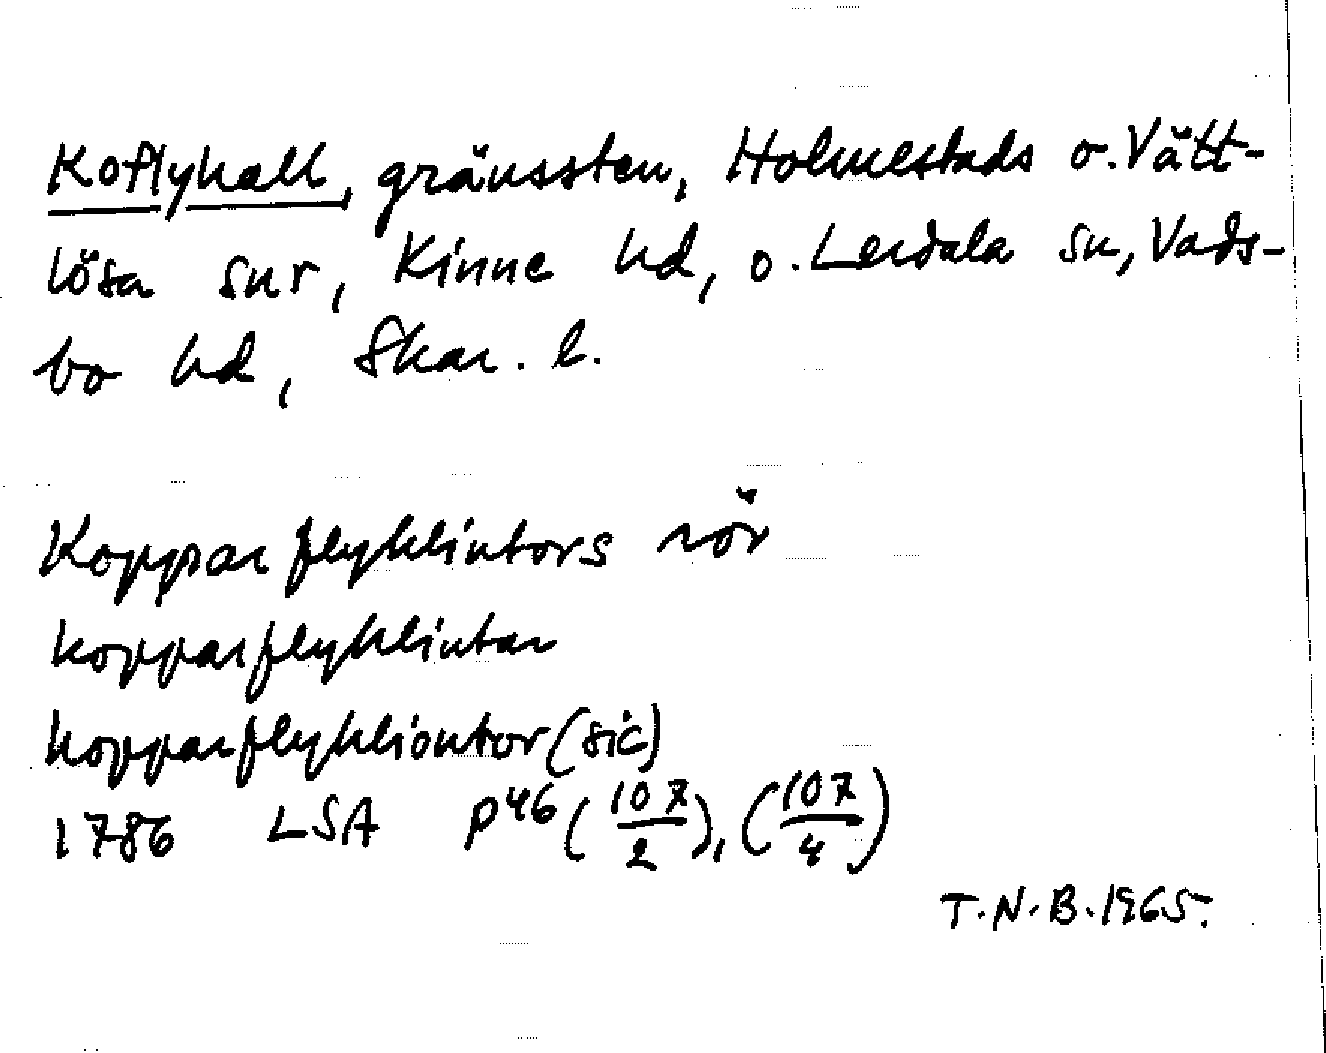 Koflyhall, gränssten, Holmestads o. Vätt-
lösa snr, Kinne hd, o. Lerdala sn, Vads-
bo hd, Skar. l.
Kopparflyklintors rör
kopparflyklintar
kopparflykliontor (sic)
1786 LSA P46 (107/2), (107/4)
T.N.B. 1965.